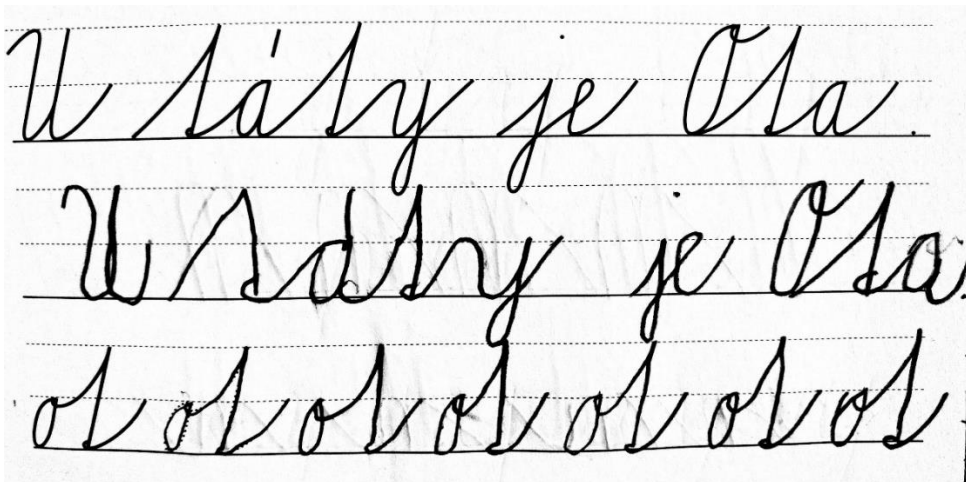 U táty je Ota.
U táty je Ota.
ot ot ot ot ot ot ot